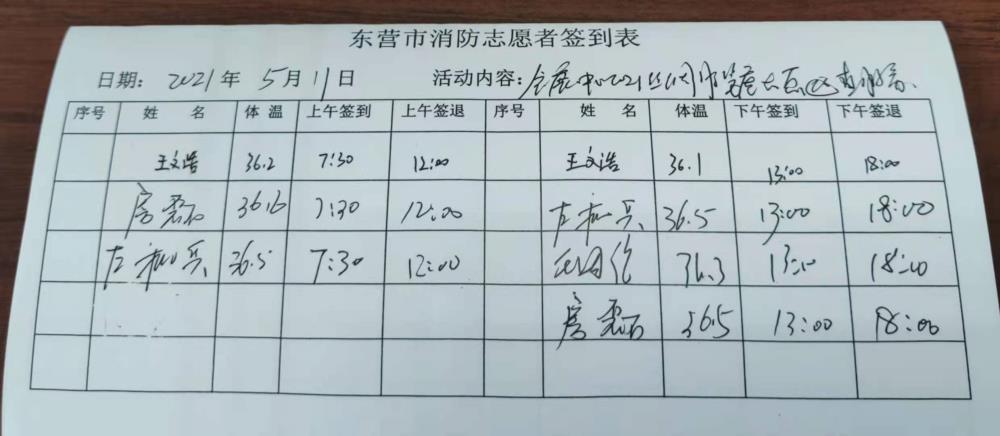 东营市消防志愿者签到表
日期: 2021年 5月 11日 活动内容: 会展中心2021
序号 姓 名 体 温 上午签到 上午签退 序号 姓 名 体温 下午签到 下午签退
王文浩 36.2 7:30 12:00 王文浩 36.1 13:00 18:00
房磊石 36.6 7:30 12:00 左 兵 36.5 13:00 18:00
左 兵 36.5 7:30 12:00 36.3 13:00 18:00
房磊石 36.5 13:00 18:00